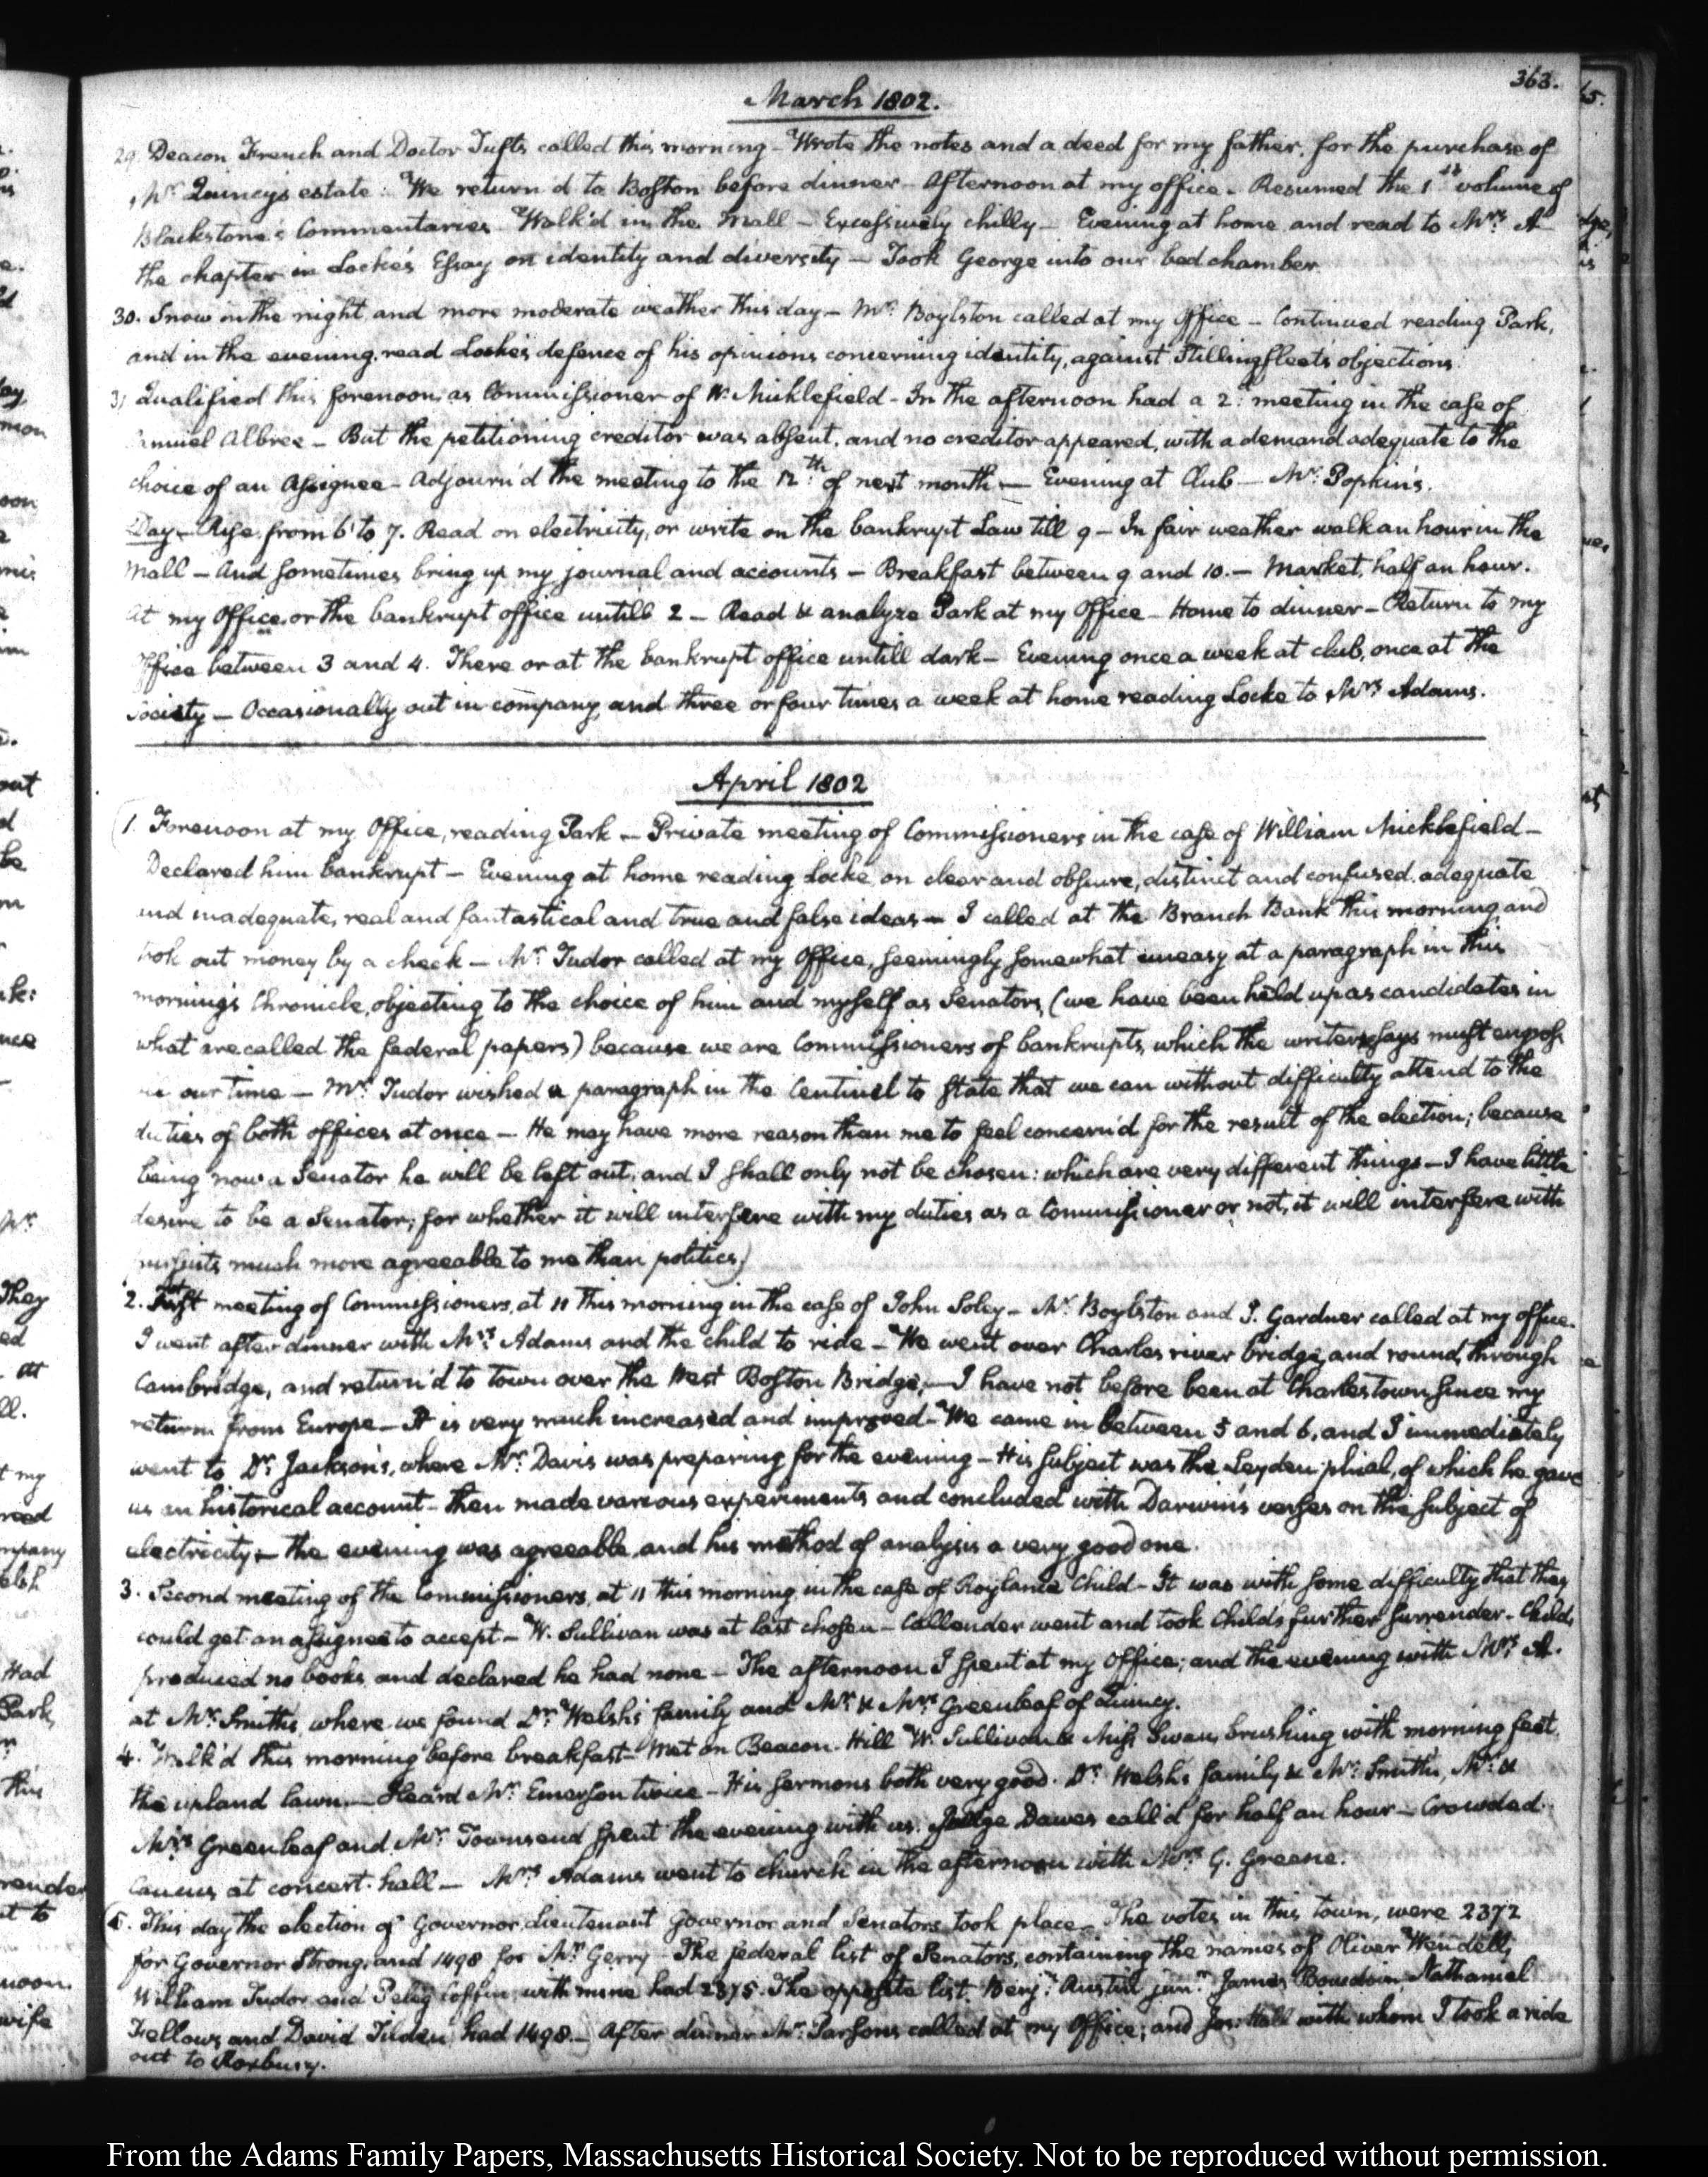 363.
March 1802.
29. Deacon French and Doctor Tufts called this morning – Wrote the notes and a deed for my father, for the purchase of
Mr. Quincy's estate. We return'd to Boston before dinner – Afternoon at my office – Resumed the 1st volume of
Blackstone's Commentaries. Walk'd in the Mall – Excessively chilly – Evening at home and read to Mrs. A
the chapter in Locke's Essay on identity and diversity – Took George into our bed chamber.
30. Snow in the night, and more moderate weather this day – Mr. Boylston called at my Office – Continued reading Park,
and in the evening, read Locke's defence of his opinions concerning identity, against Stillingfleet's objections.
31 Qualified this forenoon, as Commissioner of W. Micklefield – In the afternoon had a 2d. meeting in the case of
Samuel Albree – But the petitioning creditor was absent, and no creditor appeared, with a demand adequate to the
choice of an Assignee – Adjourn'd the meeting to the 12th. of next month – Evening at Club – Mr. Popkin's.
Day – Rise from 6 to 7. Read on electricity, or write on the bankrupt Law till 9 – In fair weather walk an hour in the
Mall – And sometimes bring up my journal and accounts – Breakfast between 9 and 10. – Market, half an hour.
At my Office, or the bankrupt office untill 2 – Read & analyze Park at my Office – Home to dinner – Return to my
Office between 3 and 4. There or at the bankrupt office untill dark – Evening once a week at club, once at the
Society – Occasionally out in company, and three or four times a week at home reading Locke to Mrs Adams.
April 1802
1. Forenoon at my Office, reading Park – Private meeting of Commissioners in the case of William Micklefield –
Declared him bankrupt – Evening at home reading Locke, on clear and obscure, distinct and confused, adequate
and inadequate, real and fantastical and true and false ideas – I called at the Branch Bank this morning and
took out money by a check – Mr. Tudor called at my Office, seemingly somewhat uneasy at a paragraph in this
morning's Chronicle, objecting to the choice of him and myself as Senators, (we have been held up as candidates in
what are called the federal papers) because we are Commissioners of bankrupts, which the writer says must engross
our time – Mr. Tudor wished a paragraph in the Centinel to state that we can without difficulty attend to the
duties of both offices at once – He may have more reason than me to feel concern'd for the result of the election; because
being now a Senator he will be left out, and I shall only not be chosen: which are very different things – I have little
desire to be a Senator; for whether it will interfere with my duties as a Commissioner or not, it will interfere with
pursuits much more agreeable to me than politics)
2. First meeting of Commissioners, at 11 this morning in the case of John Soley – Mr. Boylston and J. Gardner called at my office.
I went after dinner with Mrs. Adams and the child to ride – We went over Charles river bridge, and round, through
Cambridge, and return'd to town over the West Boston Bridge, – I have not before been at Charlestown since my
return from Europe – It is very much increased and improved – We came in between 5 and 6, and I immediately
went to Dr. Jackson's, where Mr. Davis was preparing for the evening – His subject was the Leyden phial, of which he gave
us an historical account – then made various experiments and concluded with Darwin's verses on the subject of
electricity – the evening was agreeable, and his method of analysis a very good one.
3. Second meeting of the Commissioners, at 11 this morning, in the case of Roylance Child – It was with some difficulty that they
could get an assignee to accept – W. Sullivan was at last chosen – Callender went and took Child's further surrender – Child,
produced no books, and declared he had none – The afternoon I spent at my Office; and the evening with Mrs. A.
at Mr. Smith's, where we found Dr. Welsh's family and Mr. & Mrs. Greenleaf of Quincy.
4. Walk'd this morning before breakfast – Met on Beacon-Hill W. Sullivan & Miss Swan, brushing with morning feet,
the upland lawn. – Heard Mr. Emerson twice – His sermons both very good. Dr. Welsh's family & Mr. Smith's, Mr. &
Mrs. Greenleaf and Mr. Townsend spent the evening with us. Judge Dawes call'd for half an hour – Crowded
Caucus at concert-hall – Mrs. Adams went to church in the afternoon with Mrs. G. Greene.
5. This day the election of Governor, Lieutenant Governor and Senators took place – The votes in this town, were 2372
for Governor Strong, and 1498 for Mr. Gerry – The federal list of Senators, containing the names of Oliver Wendell,
William Tudor and Peleg Coffin, with mine had 2375. The opposite list, Benj: Austin junr. James Bowdoin, Nathaniel
Fellows and David Tilden had 1498. – After dinner Mr. Parsons called at my Office; and Jos: Hall with whom I took a ride
out to Roxbury.
From the Adams Family Papers, Massachusetts Historical Society. Not to be reproduced without permission.